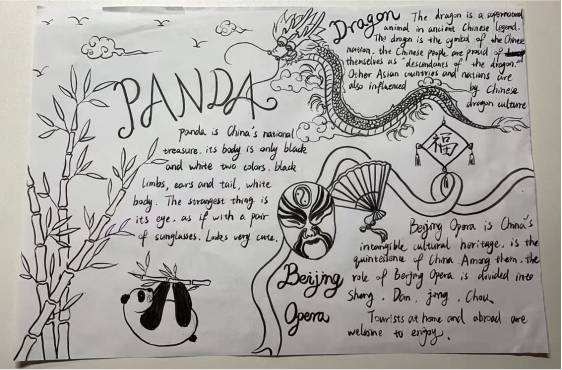 Dragon
The dragon is a supernatural
animal in ancient Chinese legend.
The dragon is the symbol of the Chinese
nation, the Chinese people are proud of
themselves as "descendants of the dragon."
Other Asian countries and nations are
also influenced by Chinese
dragon culture
PANDA
panda is China's national
treasure. its body is only black
and white two colors. black
limbs, ears and tail, white
body. The strangest thing is
its eye, as if with a pair
of sunglasses. Looks very cute.
福
Beijing
Opera
Beijing Opera is China's
intangible cultural heritage, is the
quintessence of China. Among them, the
role of Beijing Opera is divided into
Sheng. Dan, jing. Chou
Tourists at home and abroad are
welcome to enjoy.